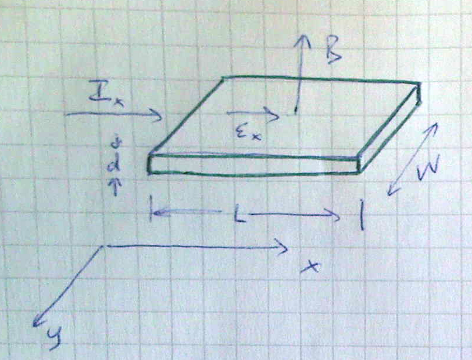 B
I_x
ε_x
d
W
L
x
y